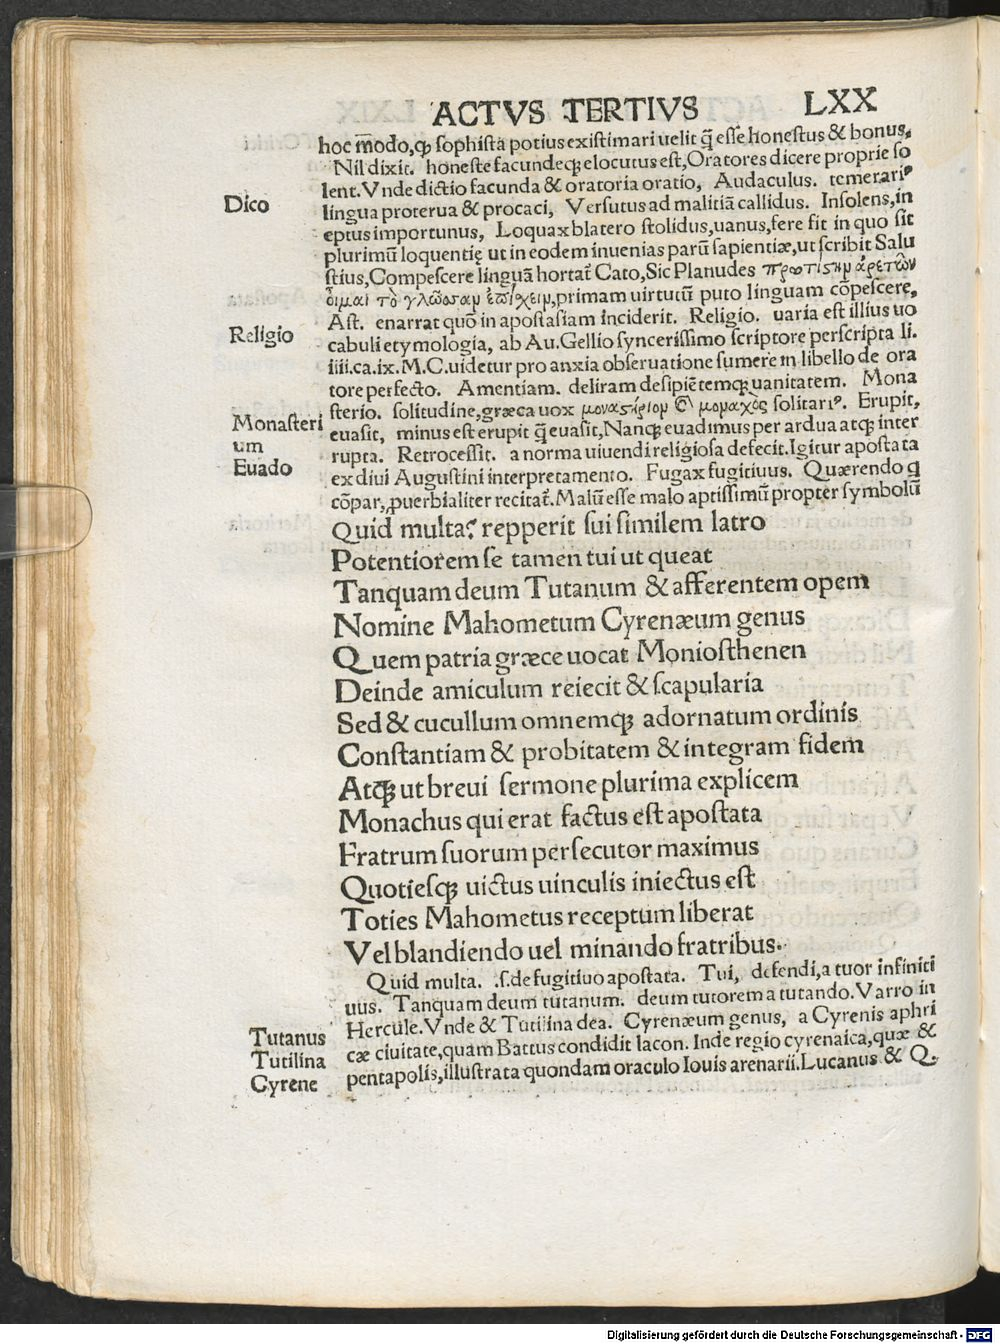 ACTVS TERTIVS LXX
hoc m̄odo, qꝫ sophistā potius existimari uelit q̃ esse honestus & bonus,
Nil dixit. honeste facundeqꝫ elocutus est, Oratores dicere proprie so
lent. Vnde dictio facunda & oratoria oratio, Audaculus. temerariꝰ
Dico
lingua proterua & procaci, Versutus ad malitiā callidus. Insolens, in
eptus importunus, Loquax blatero stolidus, uanus, fere fit in quo sit
plurimū loquentię ut in eodem inuenias parū sapientiæ, ut scribit Salu
stius, Compescere linguā hortat̃ Cato, Sic Planudes πρωτίστην ἀρετῶν
οἶμαι τὸ γλῶσσαν ἐπίχειν, primam uirtutū puto linguam cōpescere,
Ast. enarrat quō in apostasiam inciderit. Religio. uaria est illius uo
Religio
cabuli etymologia, ab Au. Gellio syncerissimo scriptore perscripta li.
iiii. ca. ix. M. C. uidetur pro anxia obseruatione sumere in libello de ora
tore perfecto. Amentiam. deliram desipiētemqꝫ uanitatem. Mona
sterio. solitudine, græca uox μοναστήριον & μοναχὸς solitariꝰ. Erupit,
Monasteri
um
euasit, minus est erupit q̃ euasit, Nanqꝫ euadimus per ardua atqꝫ inter
rupta. Retrocessit. a norma uiuendi religiosa defecit. Igitur apostata
Euado
ex diui Augustini interpretamento. Fugax fugitiuus. Quærendo q̃
cōpar, ꝓuerbialiter recitat̃. Malū esse malo aptissimū propter symbolū
Quid multa? repperit sui similem latro
Potentiorem se tamen tui ut queat
Tanquam deum Tutanum & afferentem opem
Nomine Mahometum Cyrenæum genus
Quem patria græce uocat Moniosthenen
Deinde amiculum reiecit & scapularia
Sed & cucullum omnemqꝫ adornatum ordinis
Constantiam & probitatem & integram fidem
Atqꝫ ut breui sermone plurima explicem
Monachus qui erat factus est apostata
Fratrum suorum persecutor maximus
Quotiesqꝫ uictus uinculis iniectus est
Toties Mahometus receptum liberat
Vel blandiendo uel minando fratribus.
Quid multa. .s. de fugitiuo apostata. Tui, defendi, a tuor infiniti
uus. Tanquam deum tutanum. deum tutorem a tutando. Varro in
Hercule. Vnde & Tutilina dea. Cyrenæum genus, a Cyrenis aphri
Tutanus
Tutilina
Cyrene
cæ ciuitate, quam Battus condidit lacon. Inde regio cyrenaica, quæ &
pentapolis, illustrata quondam oraculo Iouis arenarii. Lucanus & Q.
Digitalisierung gefördert durch die Deutsche Forschungsgemeinschaft - DFG